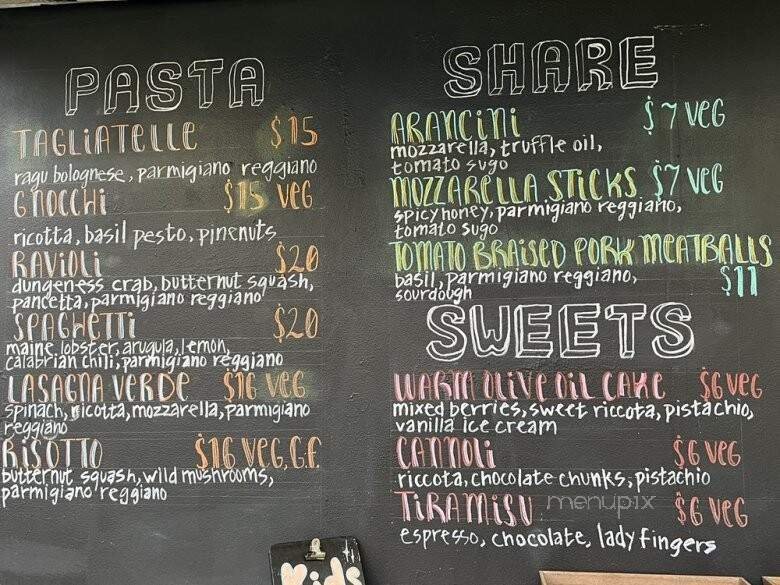 PASTA
TAGLIATELLE $15
ragu bolognese, parmigiano reggiano
GNOCCHI $15 VEG
ricotta, basil pesto, pinenuts
RAVIOLI $20
dungeness crab, butternut squash,
pancetta, parmigiano reggiano
SPAGHETTI $20
maine lobster, arugula, lemon,
calabrian chili, parmigiano reggiano
LASAGNA VERDE $16 VEG
spinach, ricotta, mozzarella, parmigiano
reggiano
RISOTTO $16 VEG, G.F.
butternut squash, wild mushrooms,
parmigiano reggiano
SHARE
ARANCINI $7 VEG
mozzarella, truffle oil,
tomato sugo
MOZZARELLA STICKS $7 VEG
spicy honey, parmigiano reggiano,
tomato sugo
TOMATO BRAISED PORK MEATBALLS
$11
basil, parmigiano reggiano,
sourdough
SWEETS
WARM OLIVE OIL CAKE $6 VEG
mixed berries, sweet riccota, pistachio,
vanilla ice cream
CANNOLI $6 VEG
riccota, chocolate chunks, pistachio
TIRAMISU $6 VEG
espresso, chocolate, lady fingers
menupix
Kids